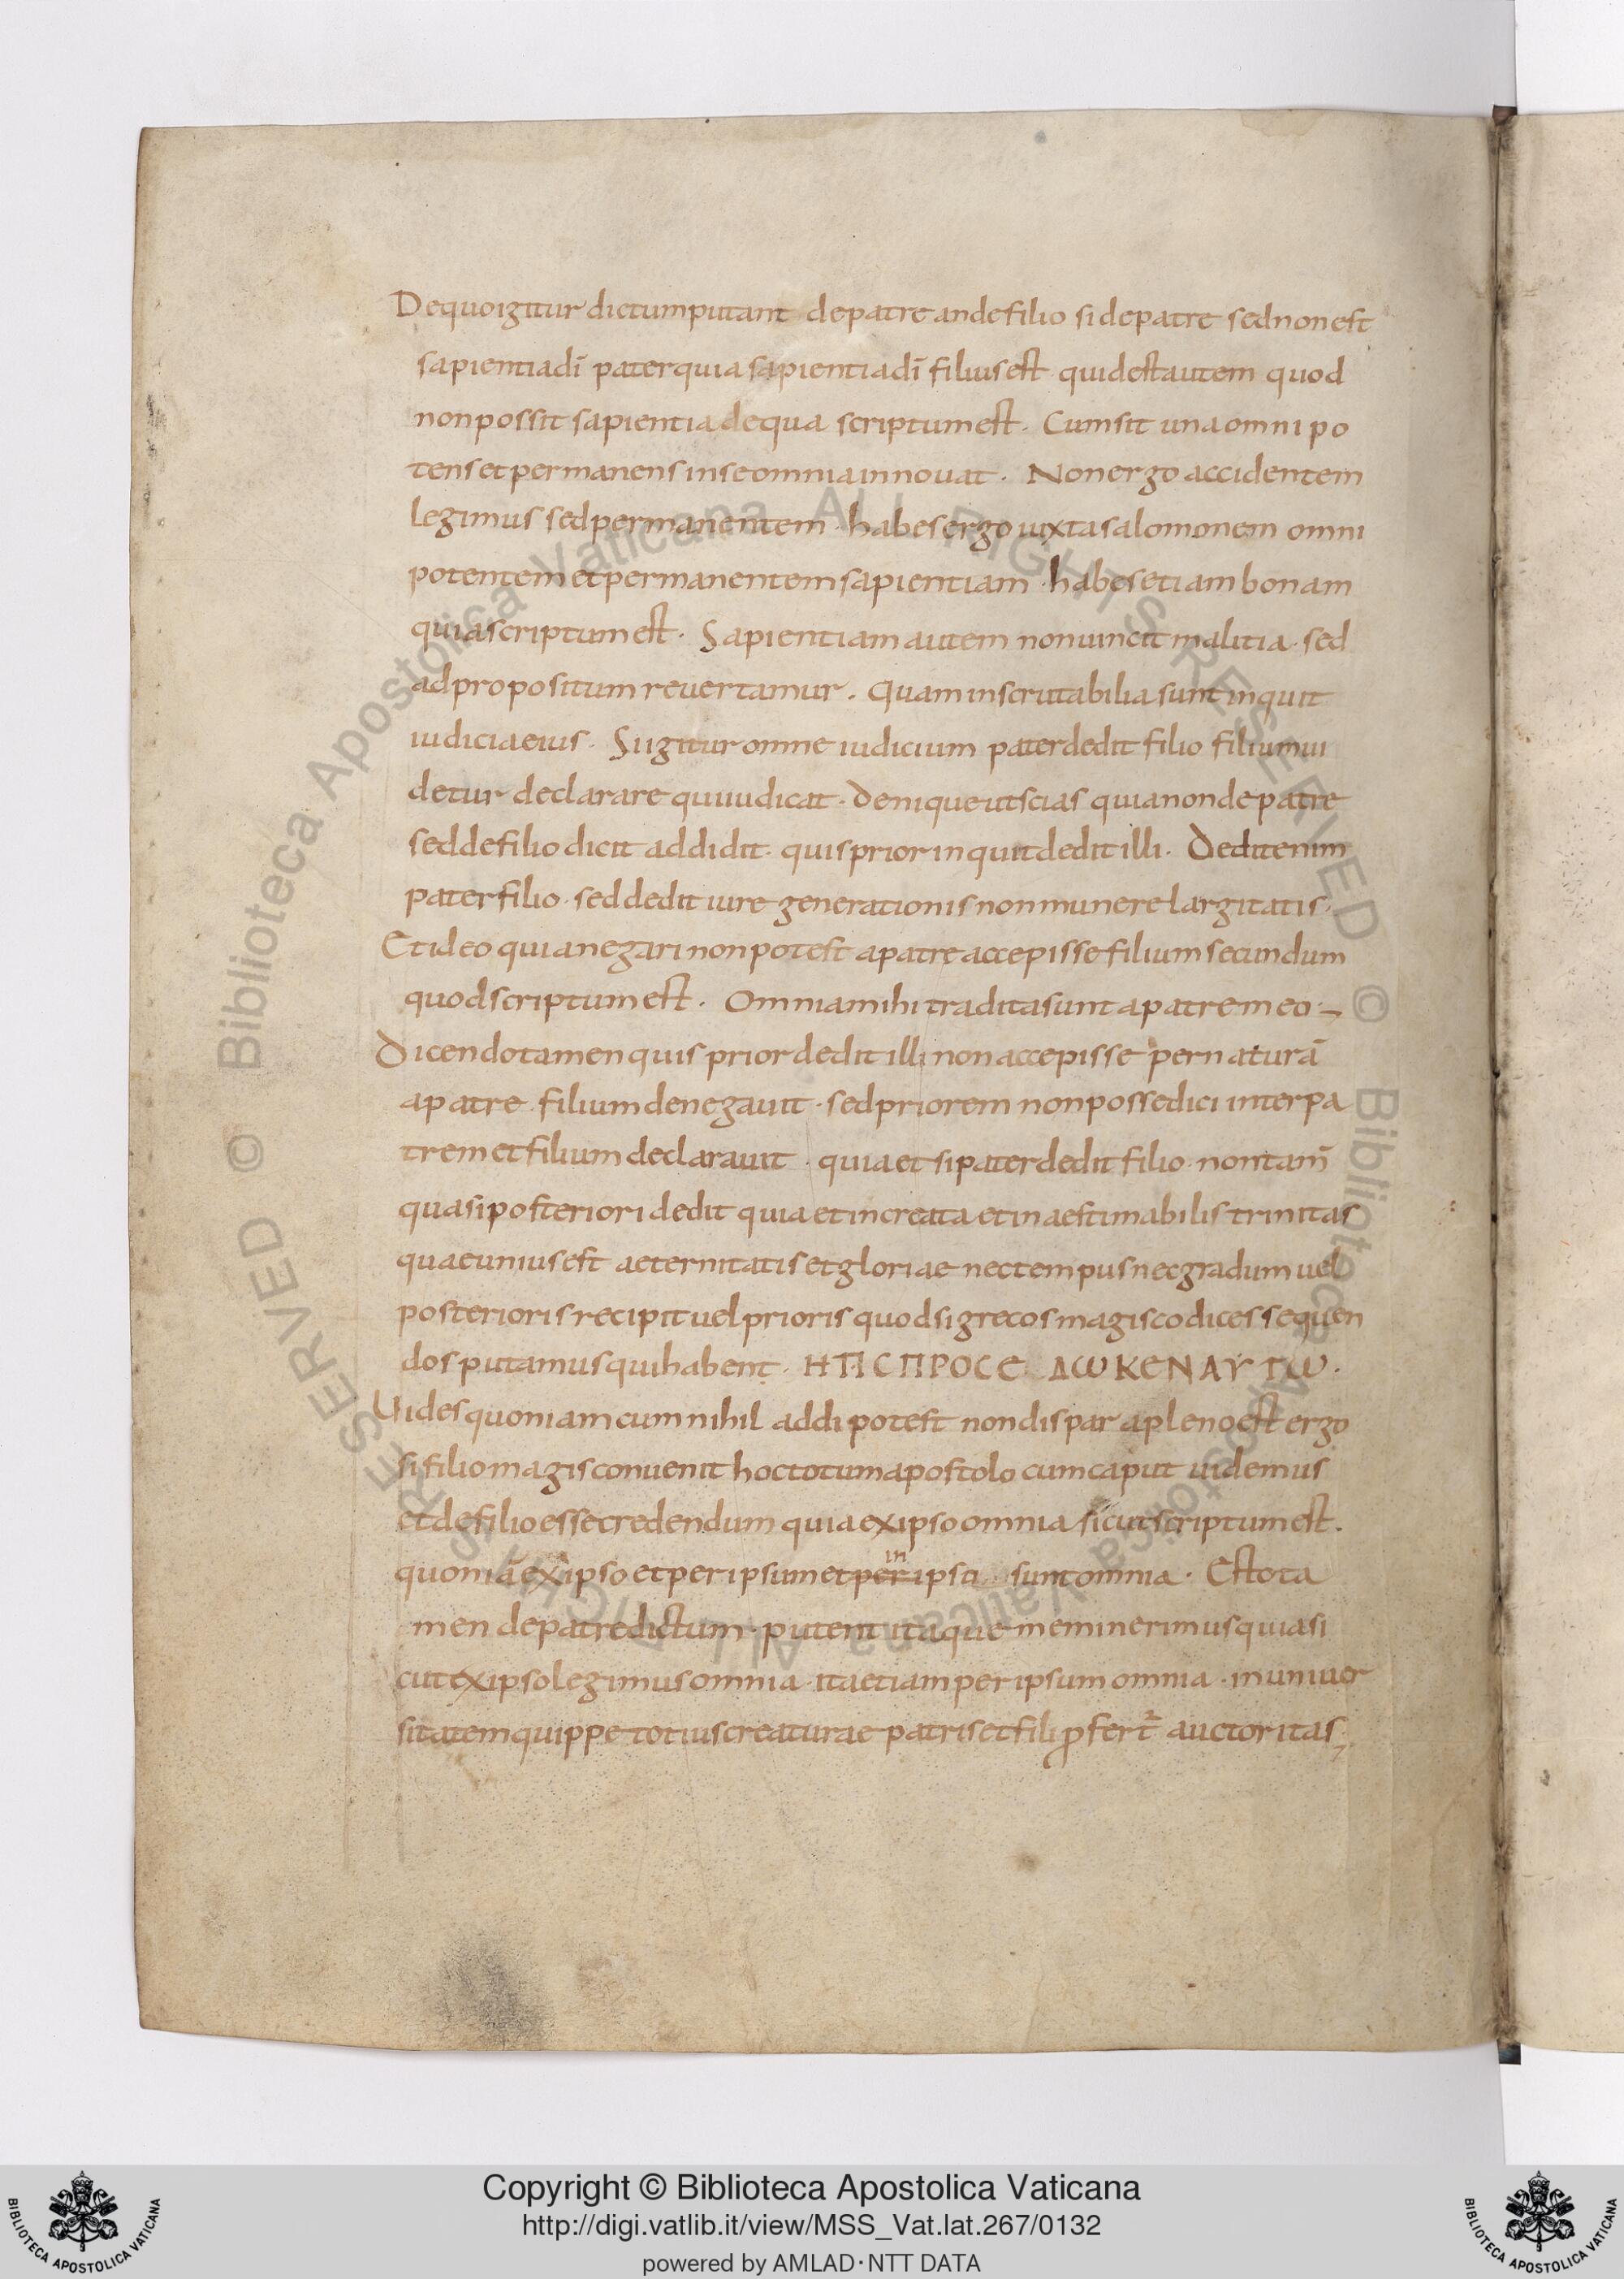 De quo igitur dictum putant de patre an de filio si de patre sed non est
sapientia dī pater quia sapientia dī filius est quid est autem quod
non possit sapientia de qua scriptum est · Cum sit una omnipo
tens et permanens in se omnia innouat · Non ergo accidentem
legimus sed permanentem · habes ergo iuxta salomonem omni
potentem et permanentem sapientiam · habes etiam bonam
quia scriptum est · Sapientiam autem non uincit malitia · sed
ad propositum reuertamur . Quam inscrutabilia sunt inquit
iudicia eius · Si igitur omne iudicium pater dedit filio filium ui
detur declarare qui iudicat · Denique ut scias quia non de patre
sed de filio dicit addidit · quis prior inquit dedit illi · Dedit enim
pater filio · sed dedit iure generationis non munere largitatis ·
Et ideo quia negari non potest a patre accepisse filium secundum
quod scriptum est · Omnia mihi tradita sunt a patre meo ·
Dicendo tamen quis prior dedit illi non accepisse per naturā
a patre filium denegauit · sed priorem non posse dici inter pa
trem et filium declarauit · quia et si pater dedit filio · non tam̄
quasi posteriori dedit quia et increata et inaestimabilis trinitas
quae unius est aeternitatis et gloriae nec tempus nec gradum uel
posterioris recipit uel prioris quod si grecos magis codices sequen
dos putamus qui habent · ΗΤΙC ΠΡΟCΕ ΔωΚΕΝ ΑΥΤω ·
Uides quoniam cum nihil addi potest non dispar a pleno est ergo
si filio magis conuenit hoc totum apostolo cum caput uidemus
et de filio esse credendum quia ex ipso omnia sicut scriptum est .
quoniā ex ipso et per ipsum et per in ipso sunt omnia · Esto ta
men de patre dictum · putent itaque meminerimus quia si
cut ex ipso legimus omnia · ita etiam per ipsum omnia · in uniuer
sitatem quippe totius creaturae patris et fili ꝓfert̄ auctoritas
Copyright © Biblioteca Apostolica Vaticana
http://digi.vatlib.it/view/MSS_Vat.lat.267/0132
powered by AMLAD · NTT DATA
BIBLIOTECA APOSTOLICA VATICANA
BIBLIOTECA APOSTOLICA VATICANA
© Biblioteca Apostolica Vaticana ALL RIGHTS RESERVED © Biblioteca Apostolica Vaticana ALL RIGHTS RESERVED